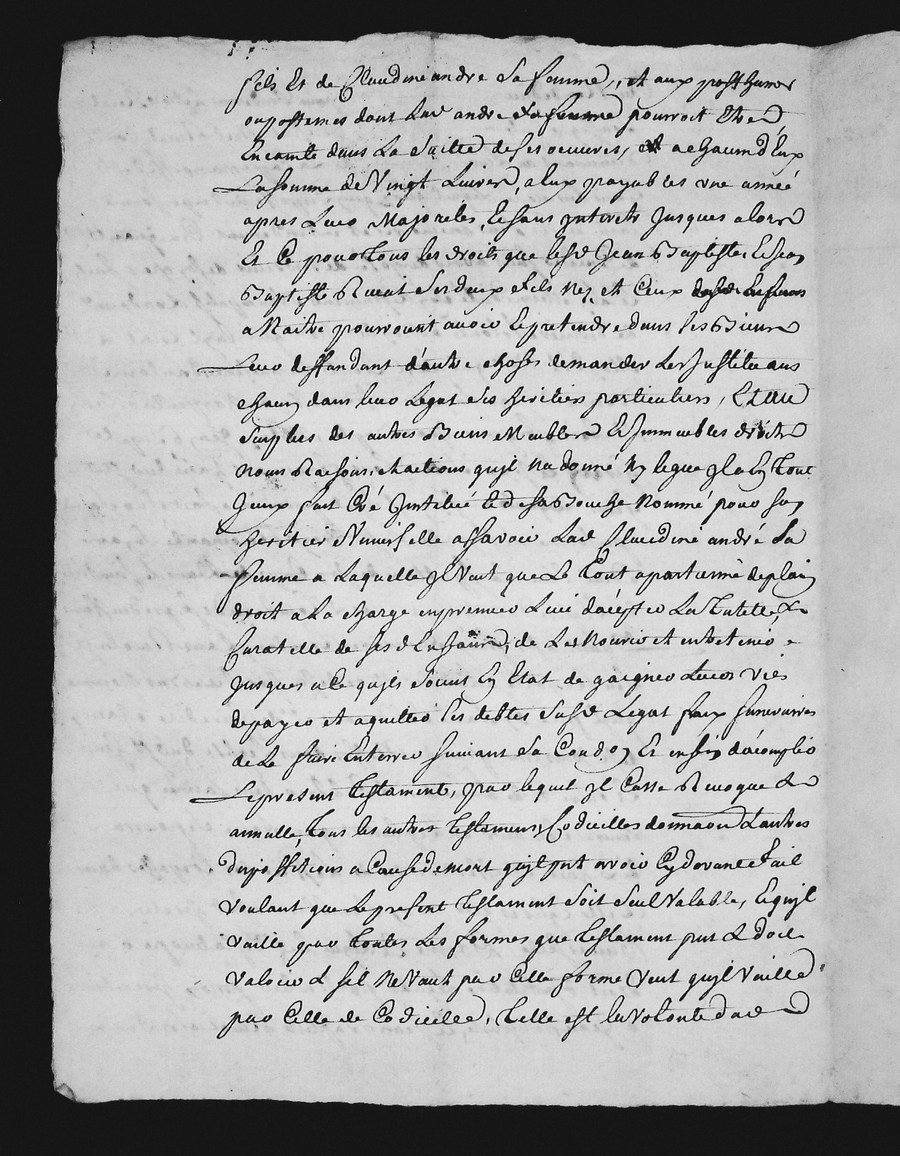 fils Et de Claudine andre Sa femme, et aux posthumes
ou postemes dont Lad andre Sa femme pourroit Etre
Enceinte dans La Suitte de Ses oeuvres, et a chacun d'Eux
La Somme de Vingt Livres, a Eux payables une année
apres Leur Majorités, Et Sans Interets Jusques alors
Et Ce pour Tous les droits que lesd Jean Baptiste, Et Jean
Baptiste Ses deux fils Nez, et Ceux
a Naitre pourroient avoir Et pretendre dans Ses Biens
Leur deffandant d'autre choses demander Les Justitue aus
chacun dans leur Legat Ses heritiers particuliers, Et au
Surplus des autres Biens Meubles Et Immeubles droits
noms Raisons, & actions qu'jl Na donné Ny legue jl a En Tout
Jceux fait Créé Jnstitué Et de Sa Bouche Nommé pour Son
heritier Universelle assavoir Lad Claudine andré Sa
femme a Laquelle Jl Veut que Le Tout apartienne de plain
droit a La charge en premier Lieu d'acepter La Tutelle, &
Curatelle de Sesd Enfans, de Les Nourir et entretenir
Jusques a Ce qu'jls Soient En Etat de gaigner Leurs Vies
de payer et aquitter Ses debtes Susd Légat fraix funeraires
de Le faire Enterrer Suivant Sa Condon Et enfin d'acomplir
Le present Testament, par lequel jl Casse Revoque &
annulle, Tous les autres Testamens, Codicilles donnaon & autres
dispositions a Cause de mort qu'jl pût avoir Cy devant fait
Voulant que Le present Testament Soit Seul Valable, Et qu'jl
Vaille par Toutes Les formes que Testament put & doit
Valoir & Sil Ne Vaut par Cette forme Veut qu'jl Vaille
par Celle de Codicille, Telle est la Volonte dud